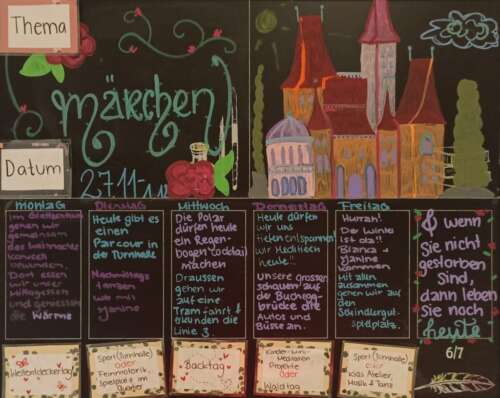 Thema
Märchen
Datum
27.11-
Montag
gehen wir
gemeinsam
Dort essen
wir unser
und geniessen
die Wärme
Dienstag
Heute gibt es
einen
Parcour in
der Turnhalle
Nachmittags
tanzen
wir mit
Janine
Mittwoch
Die Polar
dürfen heute
ein Regen-
bogen cocktail
machen
Draussen
gehen wir
auf eine
Tramfahrt &
erkunden die
Linie 3.
Donnerstag
Heute dürfen
wir uns
tiefen entspannen!
wir meditieren
heute!!
Unsere Grossen
schauen auf
brücke die
Autos und
Busse an.
Freitag
Hurra!
Der Winter
ist da!!
Bianca &
Janine
kommen
Mit allen
zusammen
gehen wir auf
den
Schindlergut-
spielplatz.
& wenn
Sie nicht
gestorben
sind,
dann leben
Sie noch
heute
6/7
Weltentdeckertag
Sport (Turnhalle)
oder
Feinmotorik
Spielplatz im
Quartier
Backtag
Kinder-Mini-
Meditation
Projekte
oder
Waldtag
Sport (Turnhalle)
oder
Kids Atelier,
Musik & Tanz